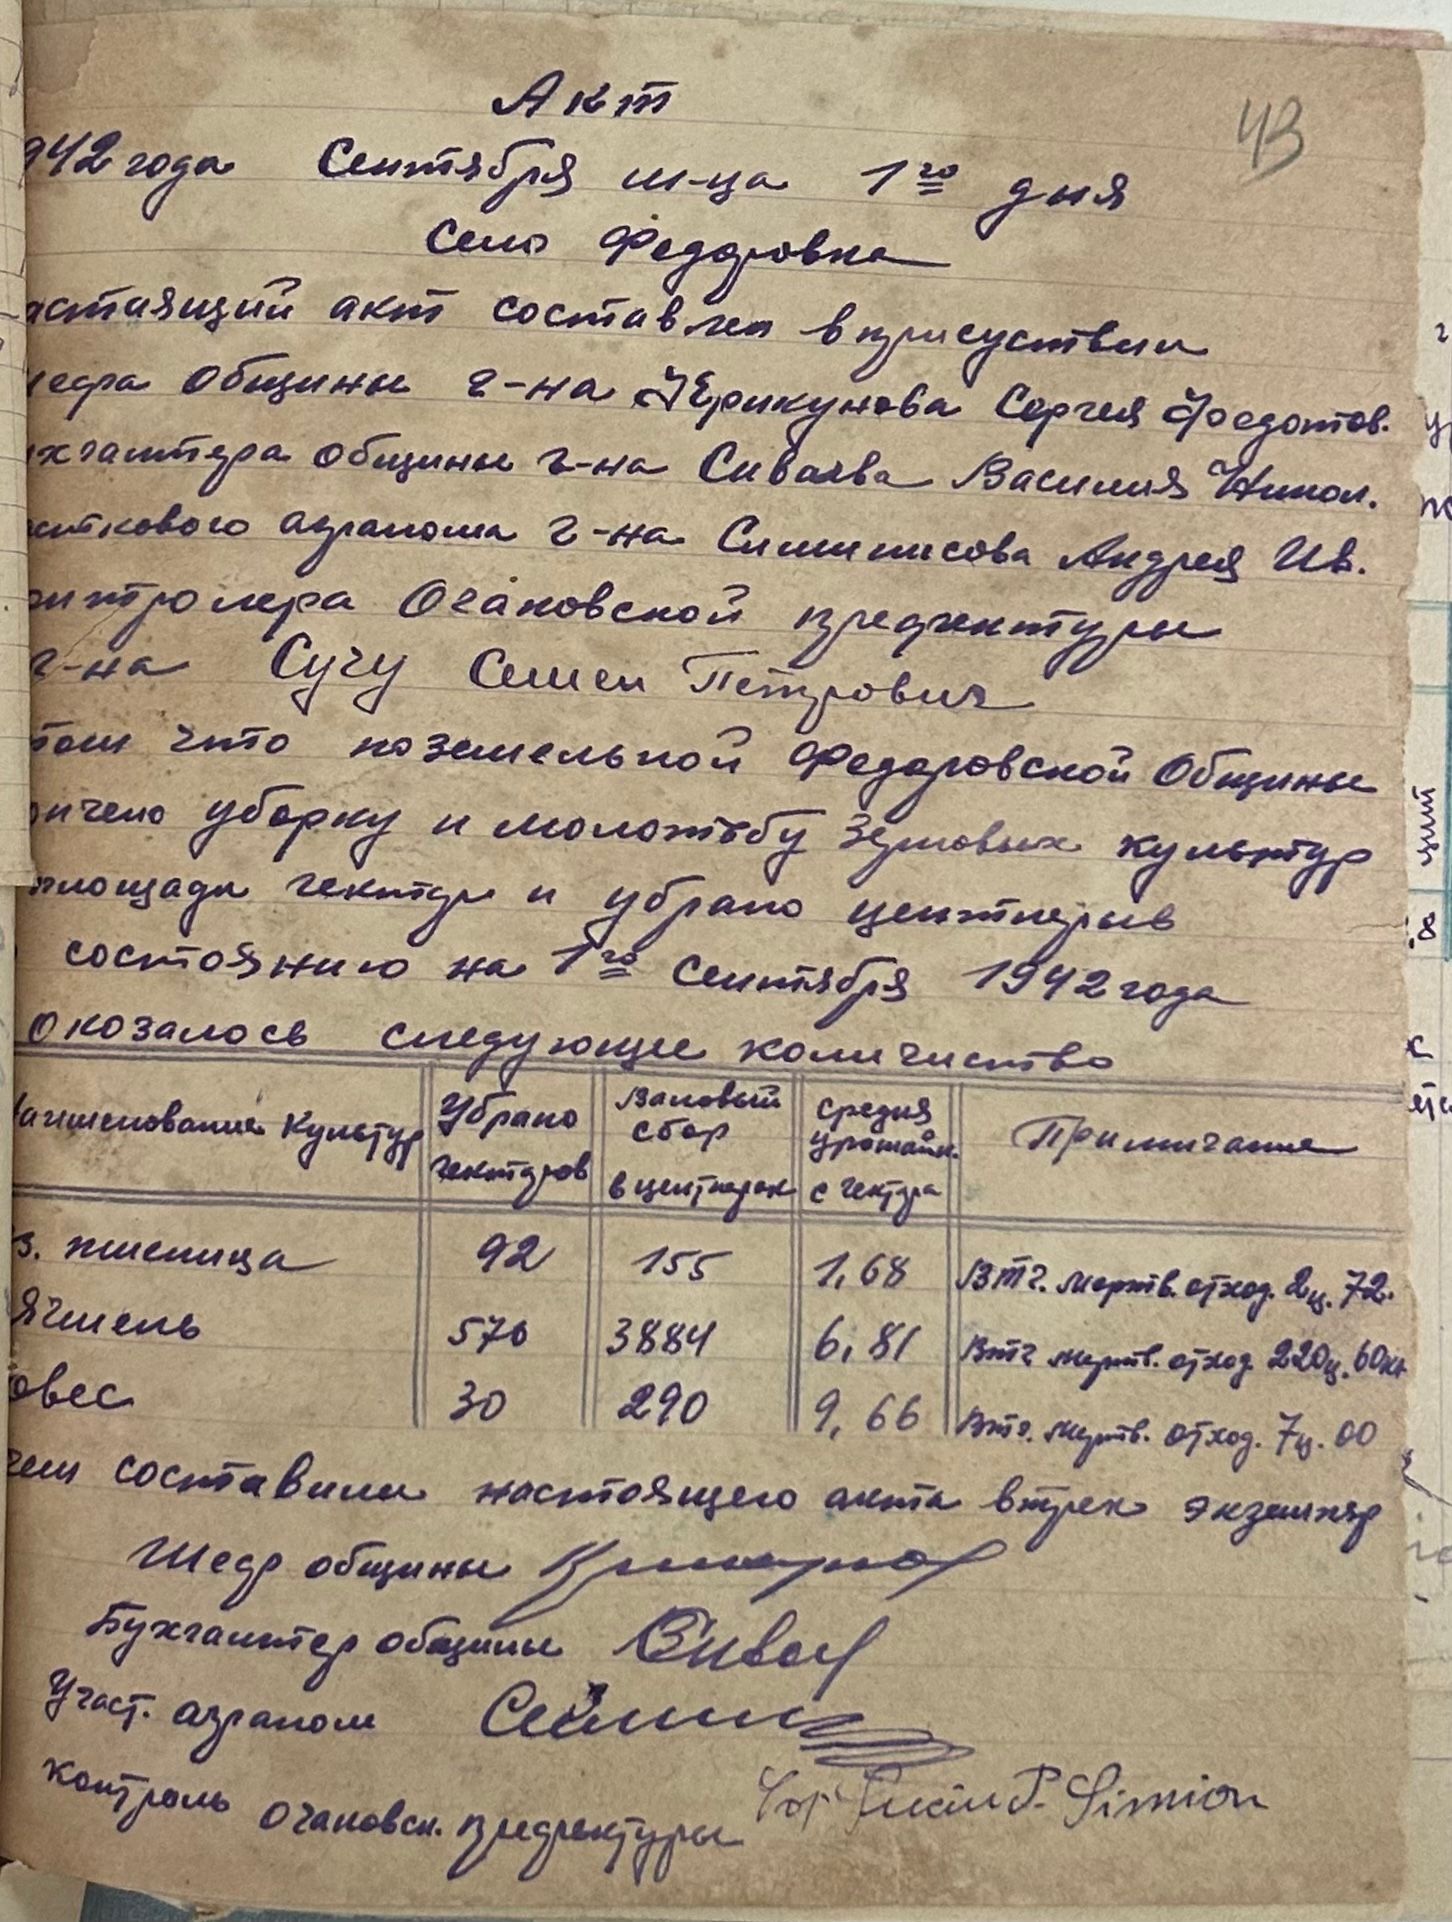 43
Акт
942 года Сентября м-ца 1го дня
Село Федоровка
астаящий акт составлен в присуствии
общины г-на Сергея Федотов.
хгалтера общины г-на Сиваева Василия Никол.
сткового агранома г-на Андрея Ив.
онтролера Очаковской префектуры
г-на Сучу Семен Петрович
том что поземельной Федоровской Общины
ончено уборку и молотьбу зерновых культур
площади гектар и убрано центнерыв
состоянию на 1го Сентября 1942 года
оказалось следующее количиство
Наименование культур Убрано гектаров Валовый сбор в центнерах средняя урожайн. с гектара Примичание
з. пшеница 92 155 1,68 Втч. мертв. отход. 2ц. 72
ячмень 570 3884 6,81 Втч мертв. отход 220ц. 60кг
овес 30 290 9,66 Втч. мертв. отход. 7ц. 00
чем составили настоящего акта втрех экземпляр
Шеф общины
Бухгалтер общины Сивае
Участ. аграном
контроль Очаковск. префектуры P. Simion